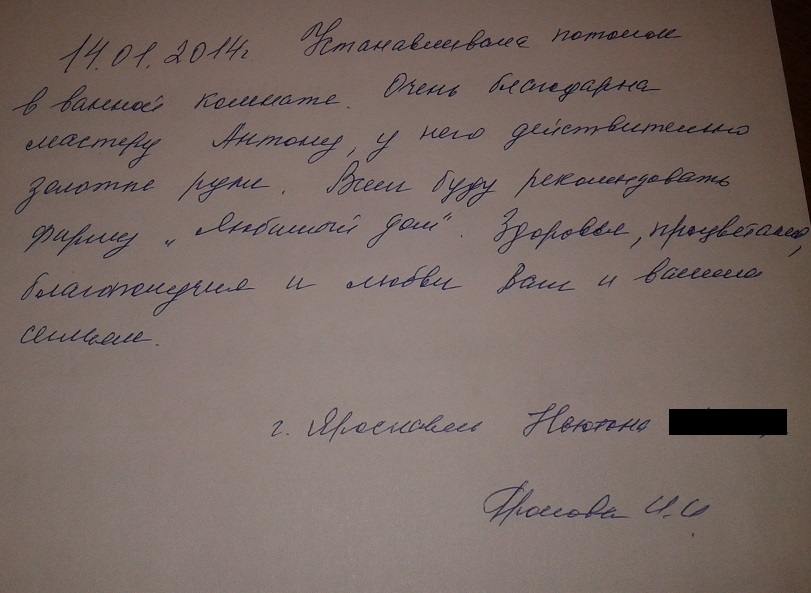 14.01.2014г. Устанавливала потолок
в ванной комнате. Очень благодарна
мастеру Антону, у него действительно
золотые руки. Всем буду рекомендовать
фирму „Любимый дом". Здоровья, процветания,
благополучия и любви Вам и вашим
семьям.
г. Ярославль Ньютона
Фролова И.И